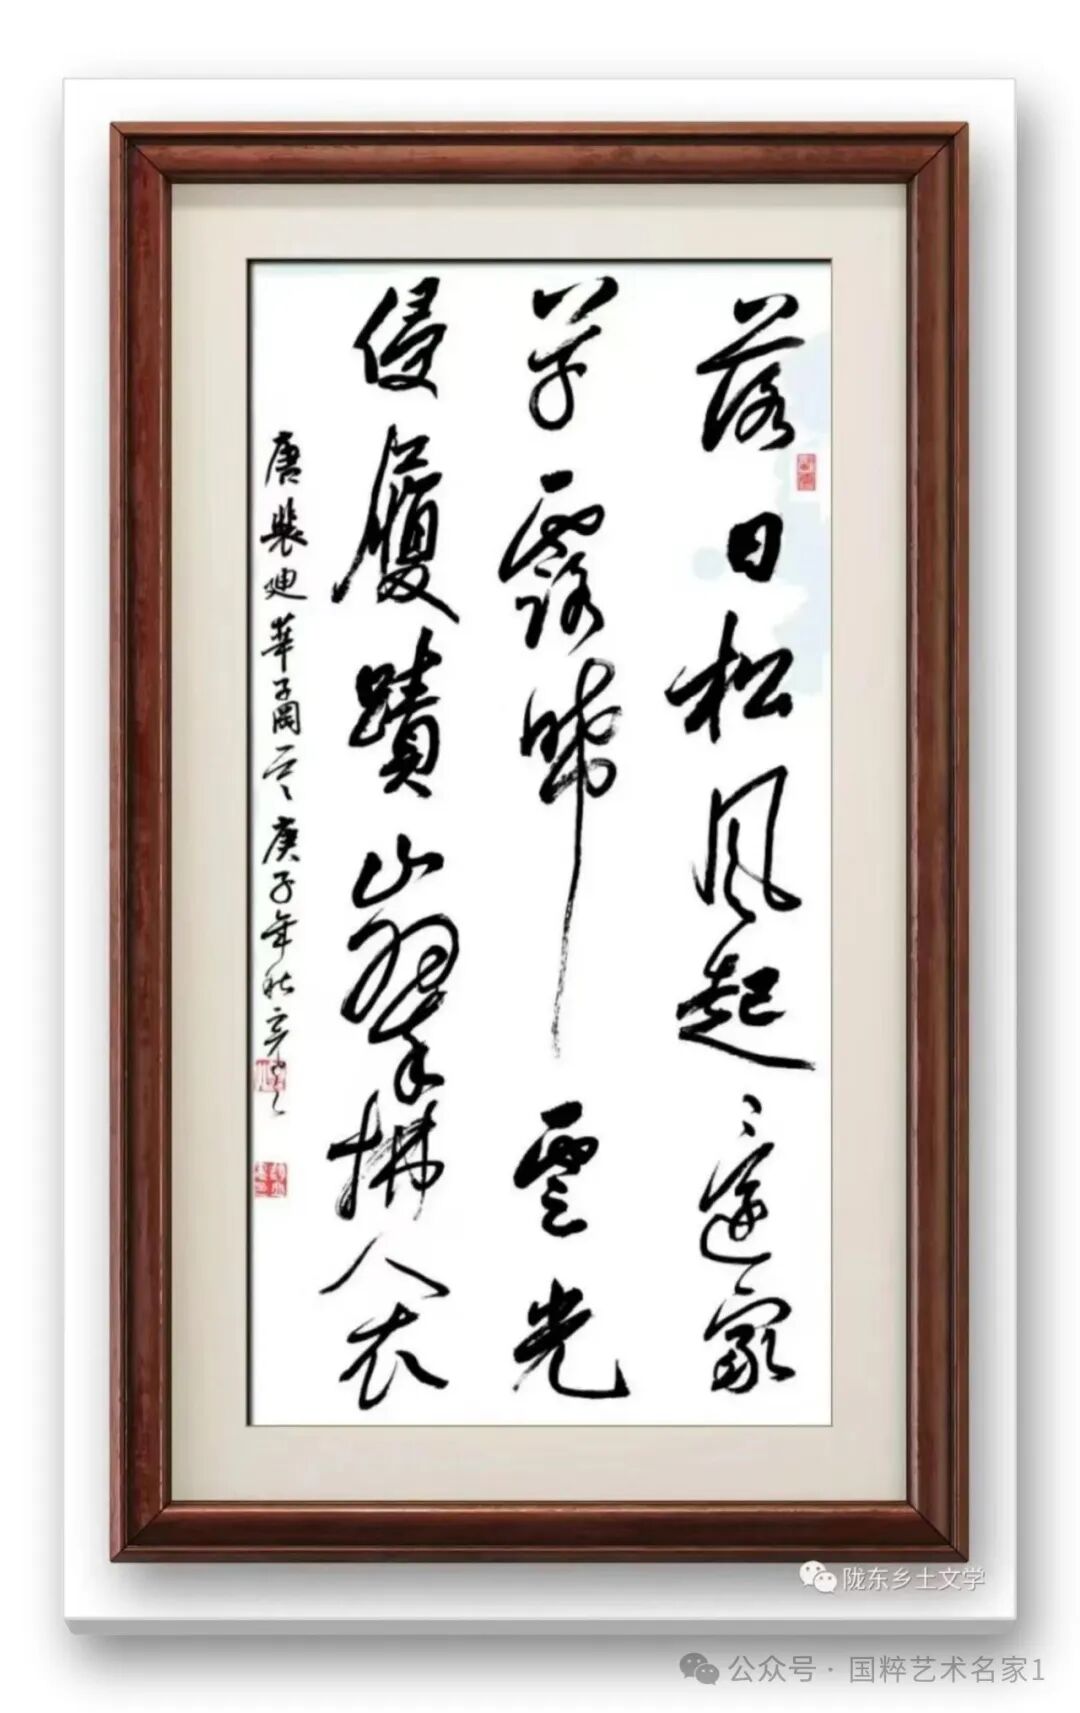 落日松風起還家
草露晞雲光
侵履蹟山翠拂人衣
唐裴迪華子岡 庚子年秋
陇东乡土文学
公众号·国粹艺术名家1